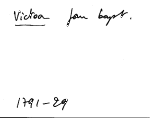 Victor jean bapt.
1791-29